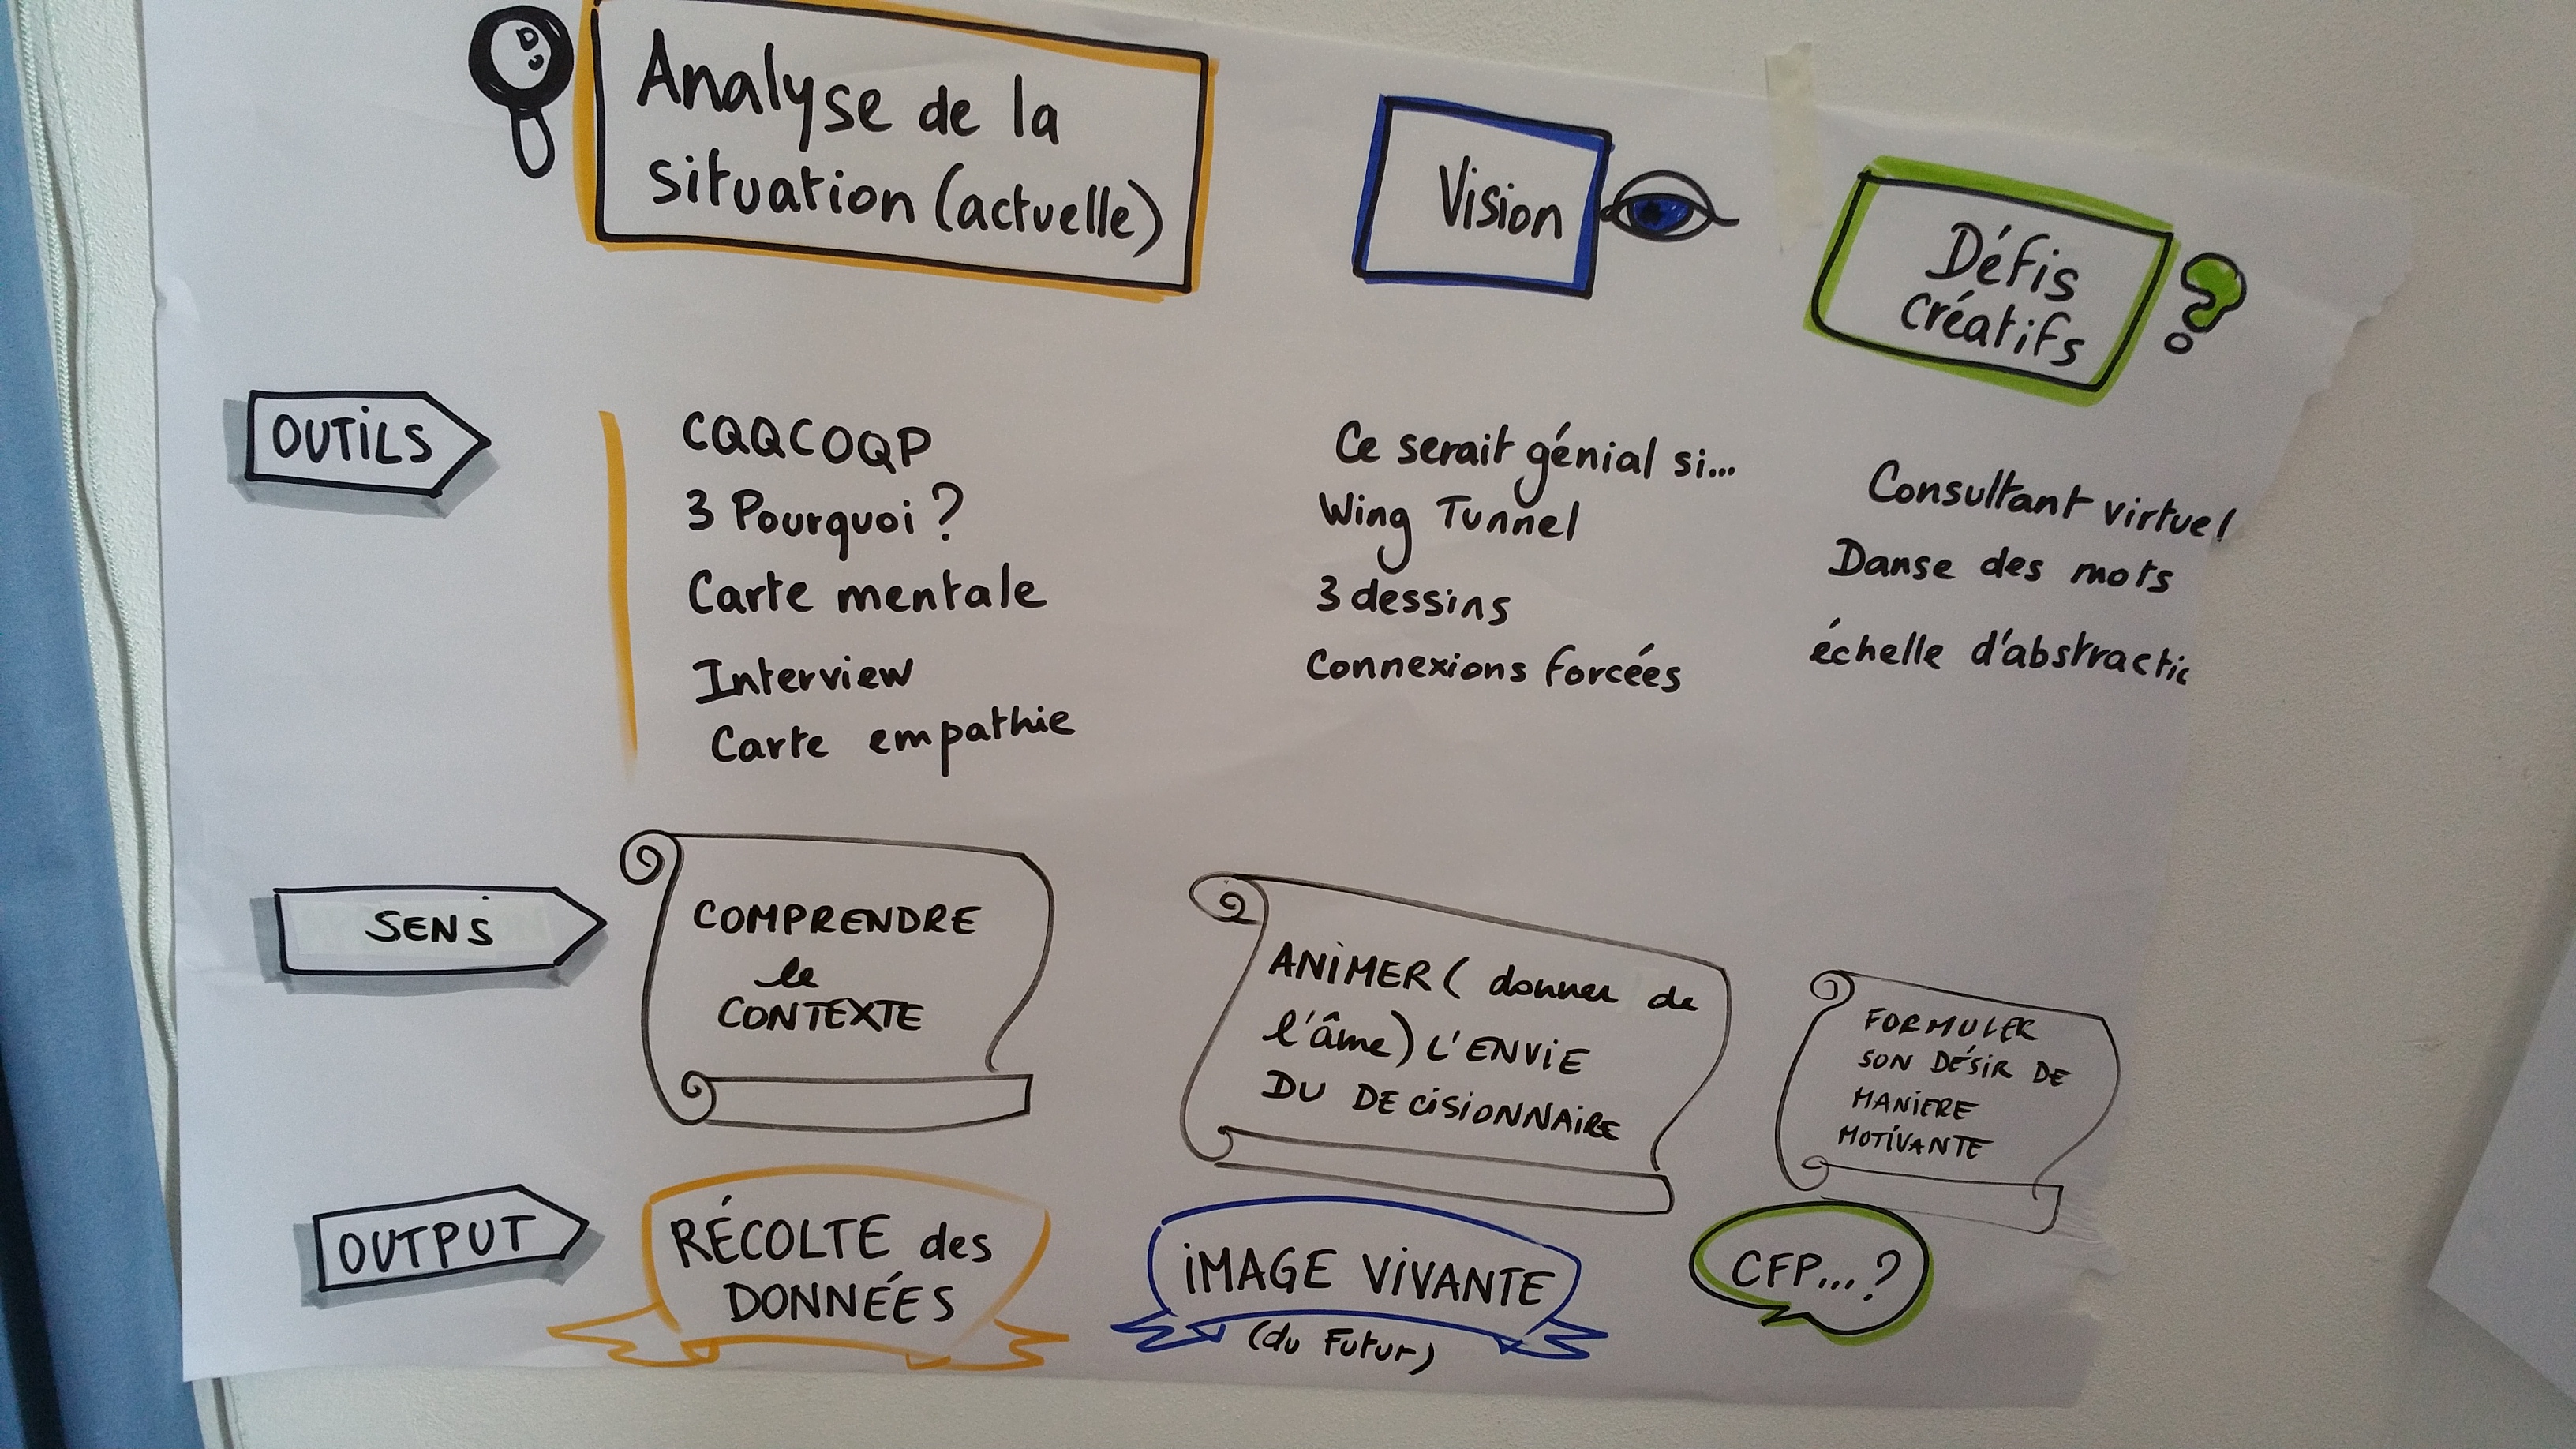 Analyse de la
situation (actuelle)
Vision
Défis
créatifs
OUTILS
CQQCOQP
3 Pourquoi ?
Carte mentale
Interview
Carte empathie
Ce serait génial si...
Wing Tunnel
3 dessins
Connexions forcées
Consultant virtuel
Danse des mots
échelle d'abstractic
SENS
COMPRENDRE
le
CONTEXTE
ANIMER ( donner de
l'âme) L'ENVIE
DU DECISIONNAIRE
FORMULER
SON DÉSIR DE
MANIERE
MOTIVANTE
OUTPUT
RÉCOLTE des
DONNÉES
IMAGE VIVANTE
(du Futur)
CFP...?